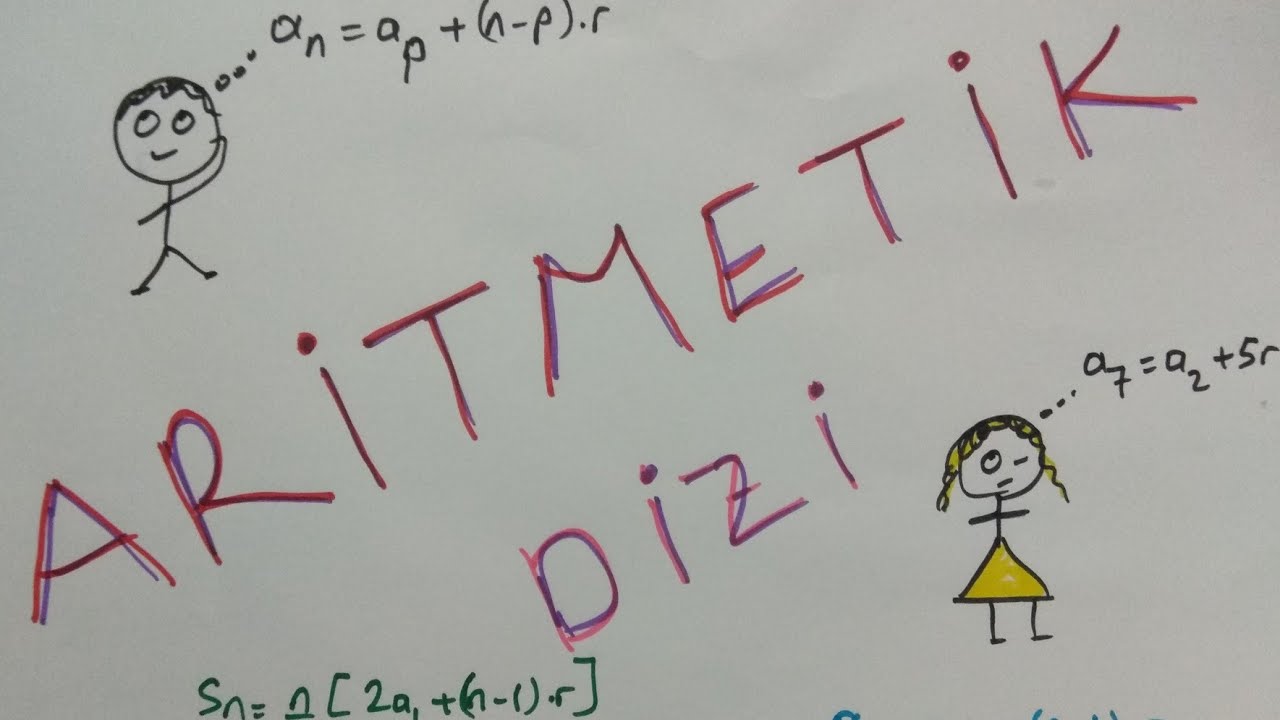 aₙ = aₚ + (n-p).r
ARİTMETİK
DİZİ
a₇ = a₂ + 5r
Sn = n [ 2a₁ + (n-1).r ]